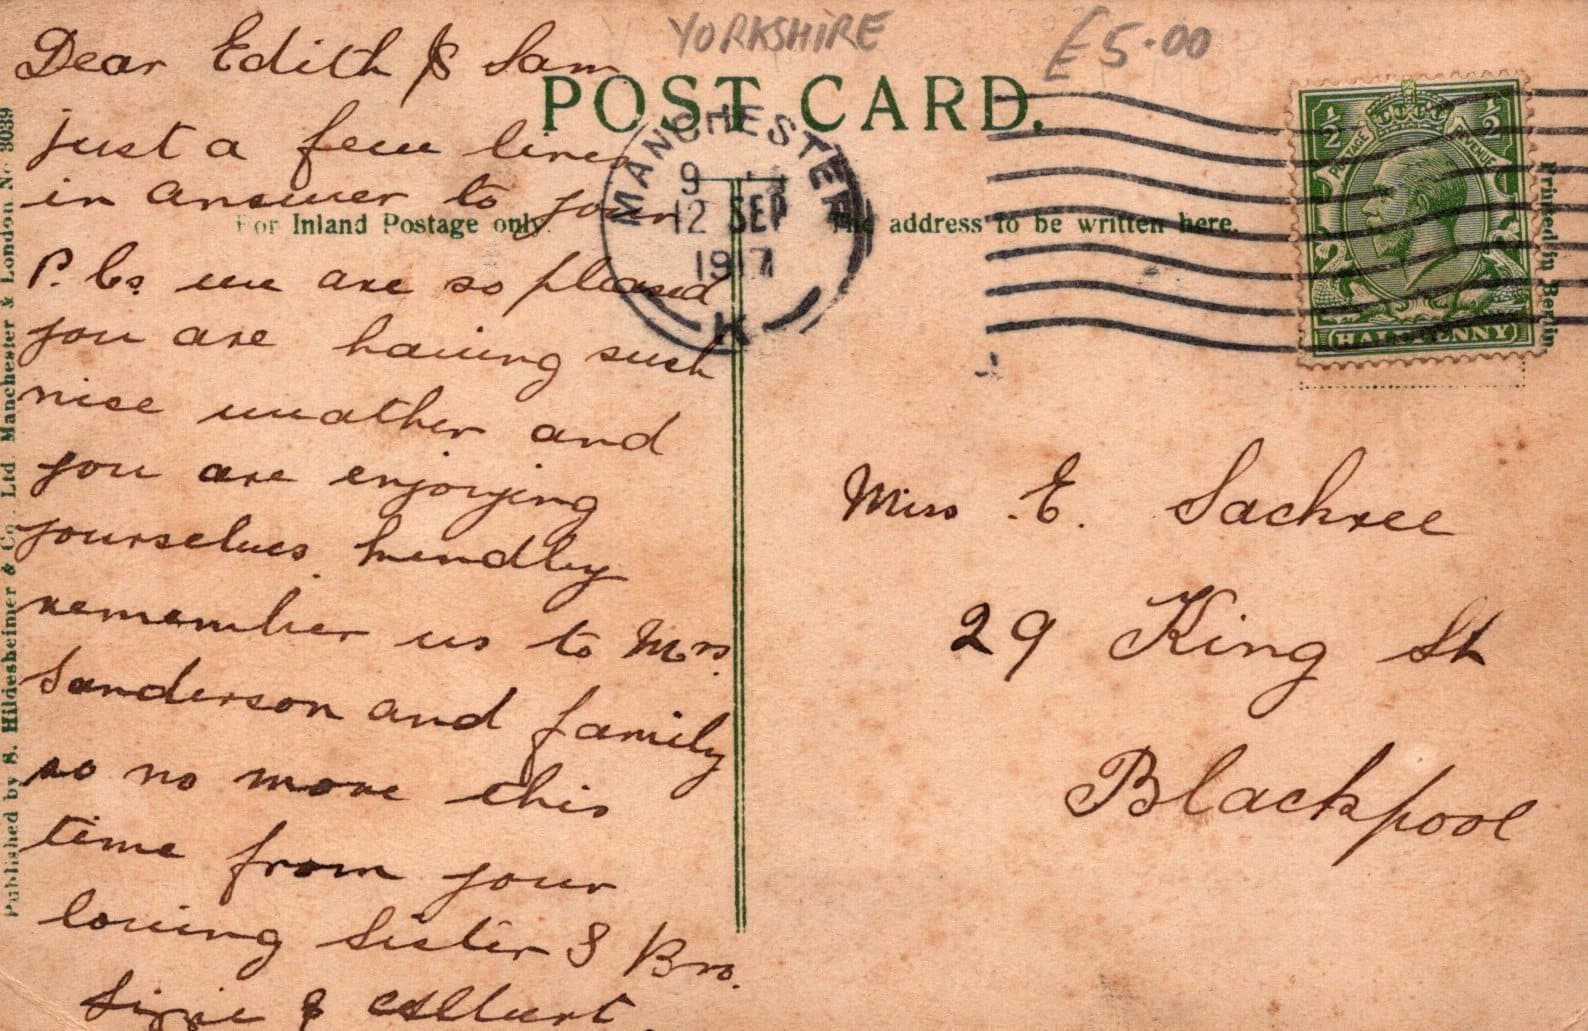 YORKSHIRE
£5.00
POST CARD.
For Inland Postage only.
The address to be written here.
MANCHESTER
9
12 SEP
1917
K
½ ½
POSTAGE REVENUE
HALFPENNY
Printed in Berlin
Published by S. Hildesheimer & Co., Ltd. Manchester & London No. 3039
Dear Edith & Sam
just a few lines
in answer to your
P. Cs we are so pleased
you are having such
nise weather and
you are enjoying
yourselves kindly
remember us to Mrs
Sanderson and family
so no more this
time from your
loving Sister & Bro.
Lizzie & Albert
Miss E. Sackree
29 King St
Blackpool